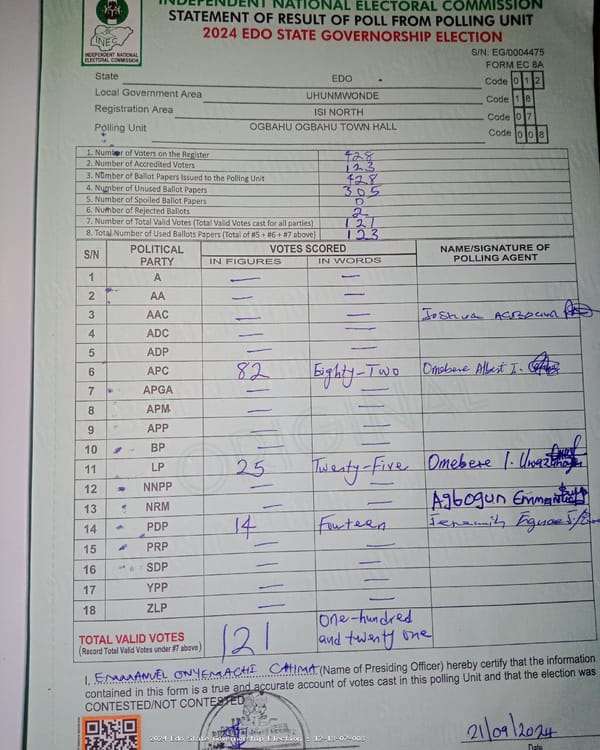 INDEPENDENT NATIONAL ELECTORAL COMMISSION
STATEMENT OF RESULT OF POLL FROM POLLING UNIT
2024 EDO STATE GOVERNORSHIP ELECTION
INEC
INDEPENDENT NATIONAL
ELECTORAL COMMISSION
S/N: EG/0004475
FORM EC 8A
State EDO Code 0 1 2
Local Government Area UHUNMWONDE Code 1 8
Registration Area ISI NORTH Code 0 7
Polling Unit OGBAHU OGBAHU TOWN HALL Code 0 0 8
1. Number of Voters on the Register 428
2. Number of Accredited Voters 123
3. Number of Ballot Papers Issued to the Polling Unit 428
4. Number of Unused Ballot Papers 305
5. Number of Spoiled Ballot Papers 0
6. Number of Rejected Ballots 2
7. Number of Total Valid Votes (Total Valid Votes cast for all parties) 121
8. Total Number of Used Ballots Papers (Total of #5 + #6 + #7 above) 123
S/N POLITICAL PARTY VOTES SCORED NAME/SIGNATURE OF POLLING AGENT
IN FIGURES IN WORDS
1 A — —
2 AA — —
3 AAC — — Joshua
4 ADC — —
5 ADP — —
6 APC 82 Eighty-Two Omebere Albert I.
7 APGA — —
8 APM — —
9 APP — —
10 BP — —
11 LP 25 Twenty-Five Omebere I.
12 NNPP — —
13 NRM — — Agbogun
14 PDP 14 Fourteen
15 PRP — —
16 SDP — —
17 YPP — —
18 ZLP — —
TOTAL VALID VOTES
(Record Total Valid Votes under #7 above)
121
One-hundred
and twenty one
ORIGINAL
I, EMMANUEL ONYEMACHI CHIMA (Name of Presiding Officer) hereby certify that the information
contained in this form is a true and accurate account of votes cast in this polling Unit and that the election was
CONTESTED/NOT CONTESTED
2024 Edo State Governorship Election - 12-18-07-008
21/09/2024
Date